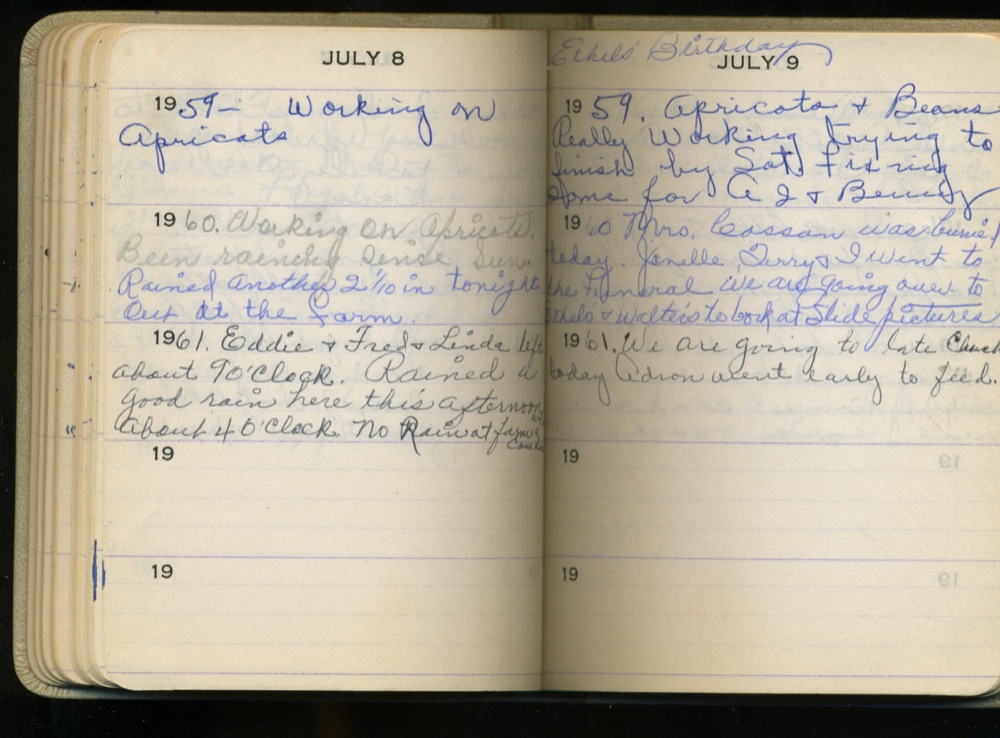 JULY 8
1959- Working on
Apricots
1960. Working on Apricots.
Been raining sense Sun.
Rained another 2 1/10 in tonight
Out at the Farm
1961. Eddie & Fred & Linda left
about 9 O'Clock. Rained a
good rain here this afternoon
About 4 O'Clock. No Rain at farm
Ethels' Birthday
JULY 9
1959. Apricots & Beans
Really Working trying to
finish by Sat. Fixing
Some for A J &
1960 Mrs. Cassan was buried
today. Janelle, Terry & I went to
the Funeral We are going over to
Ethels & Walters to look at Slide pictures
1961. We are going to late Church
today Adron went early to feed.
19
19
19
19